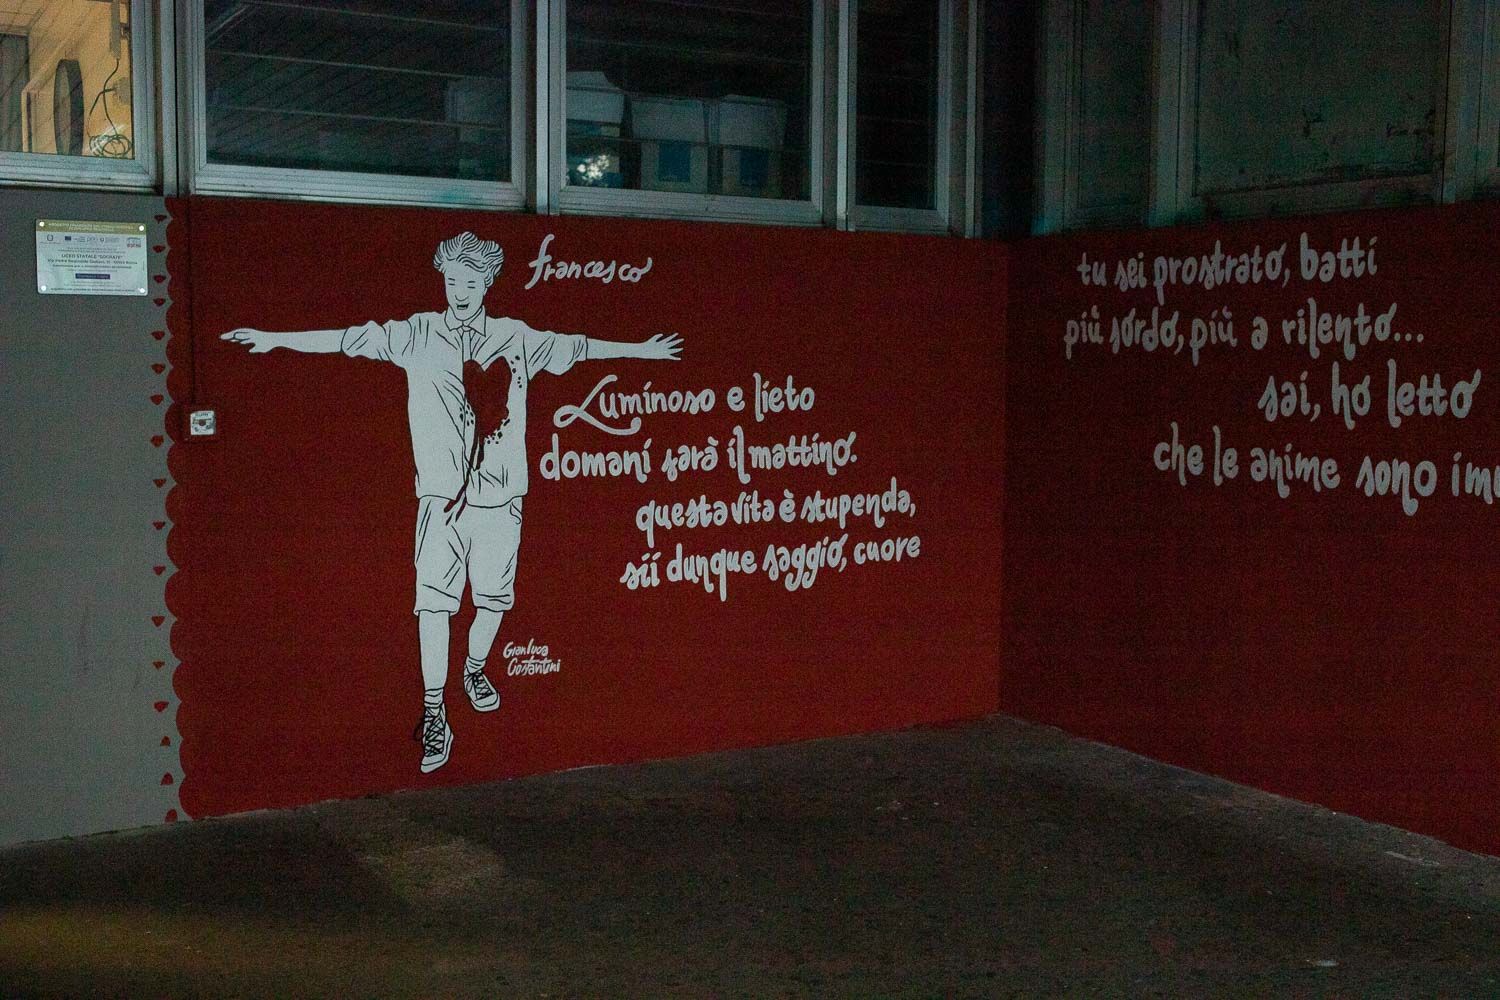 LICEO STATALE "SOCRATE"
francesco
Luminoso e lieto
domani sarà il mattino.
questa vita è stupenda,
sii dunque saggio, cuore
Gianluca
Costantini
tu sei prostrato, batti
più sordo, più a rilento...
sai, ho letto
che le anime sono